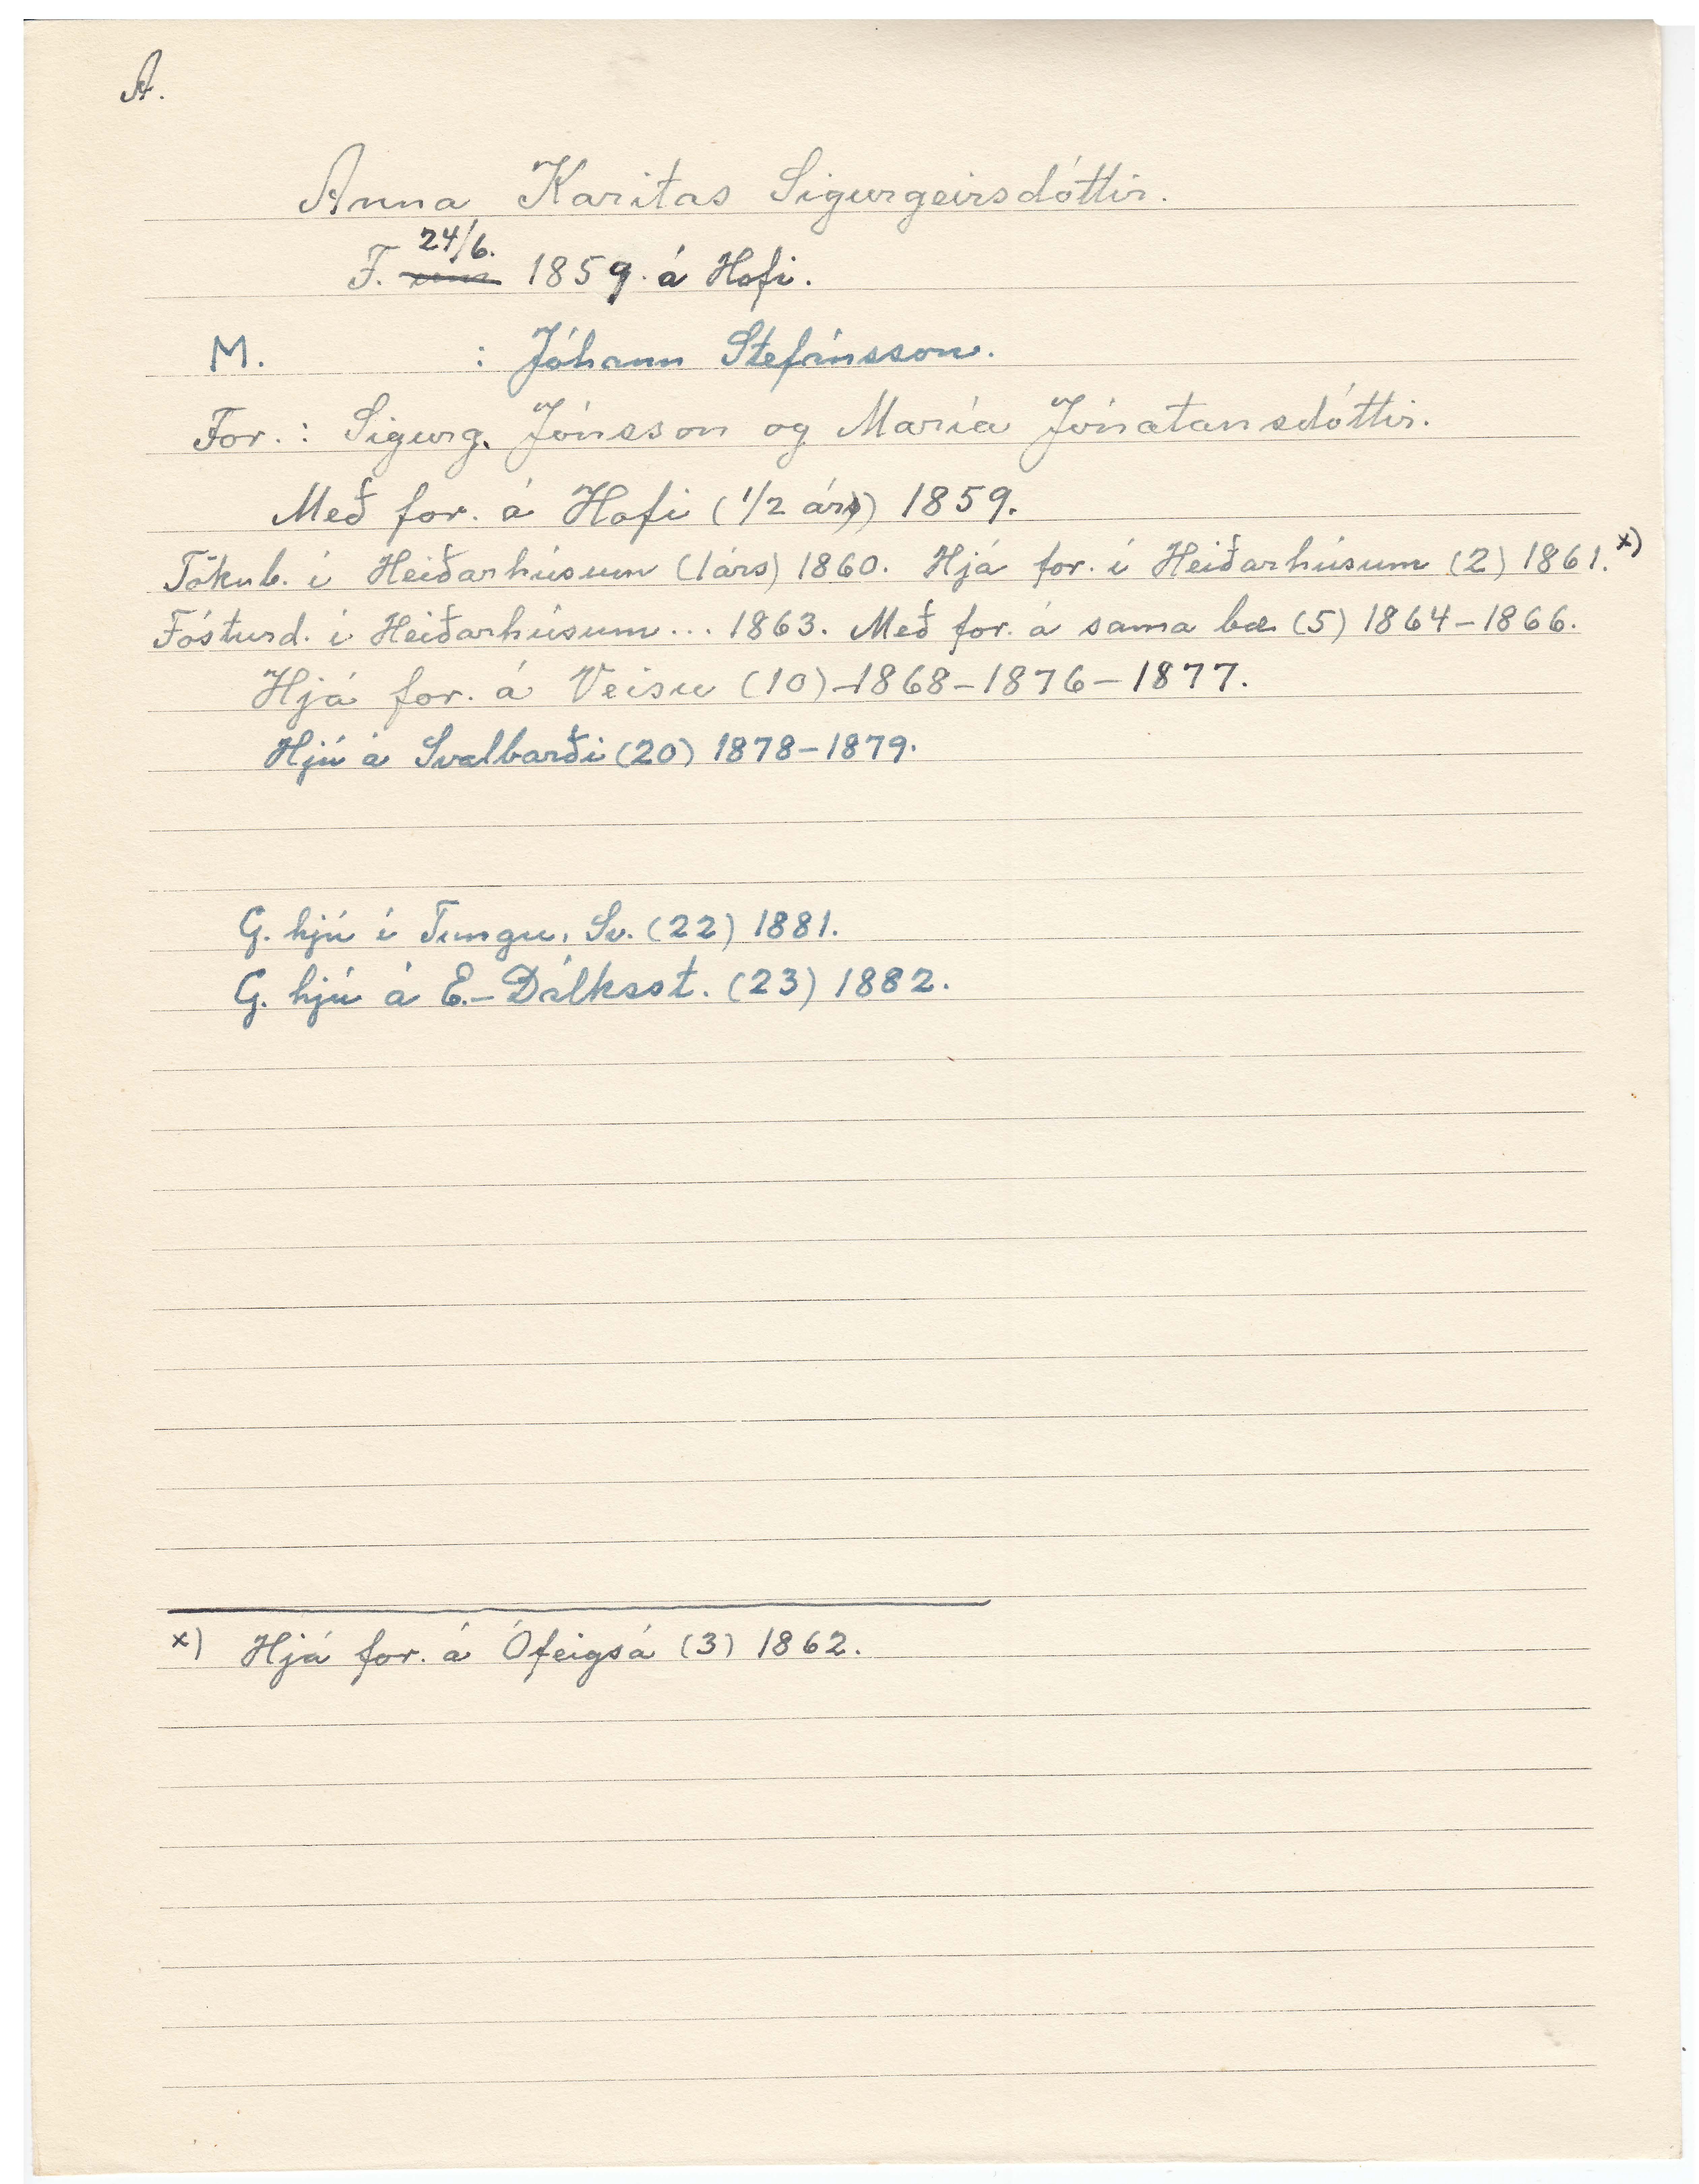 A.
Anna Karitas Sigurgeirsdóttir.
24/6.
F. um 1859 á Hofi.
M. : Jóhann Stefánsson.
For.: Sigurg. Jónsson og María Jónatansdóttir.
Með for. á Hofi (1/2 árs) 1859.
Tökub. í Heiðarhúsum (1árs) 1860. Hjá for. í Heiðarhúsum (2) 1861.x)
Fósturd. í Heiðarhúsum... 1863. Með for. á sama bæ (5) 1864-1866.
Hjá for. á Veisu (10)-1868-1876-1877.
Hjú á Svalbarði (20) 1878-1879.
G. hjú í Tungu, Sv. (22) 1881.
G. hjú á E.-Dálksst. (23) 1882.
x) Hjá for. á Ófeigsá (3) 1862.